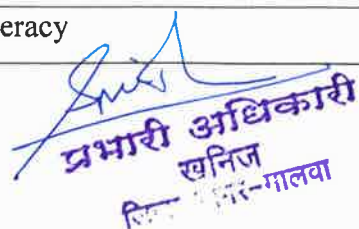 eracy
प्रभारी अधिकारी
खनिज
मालवा